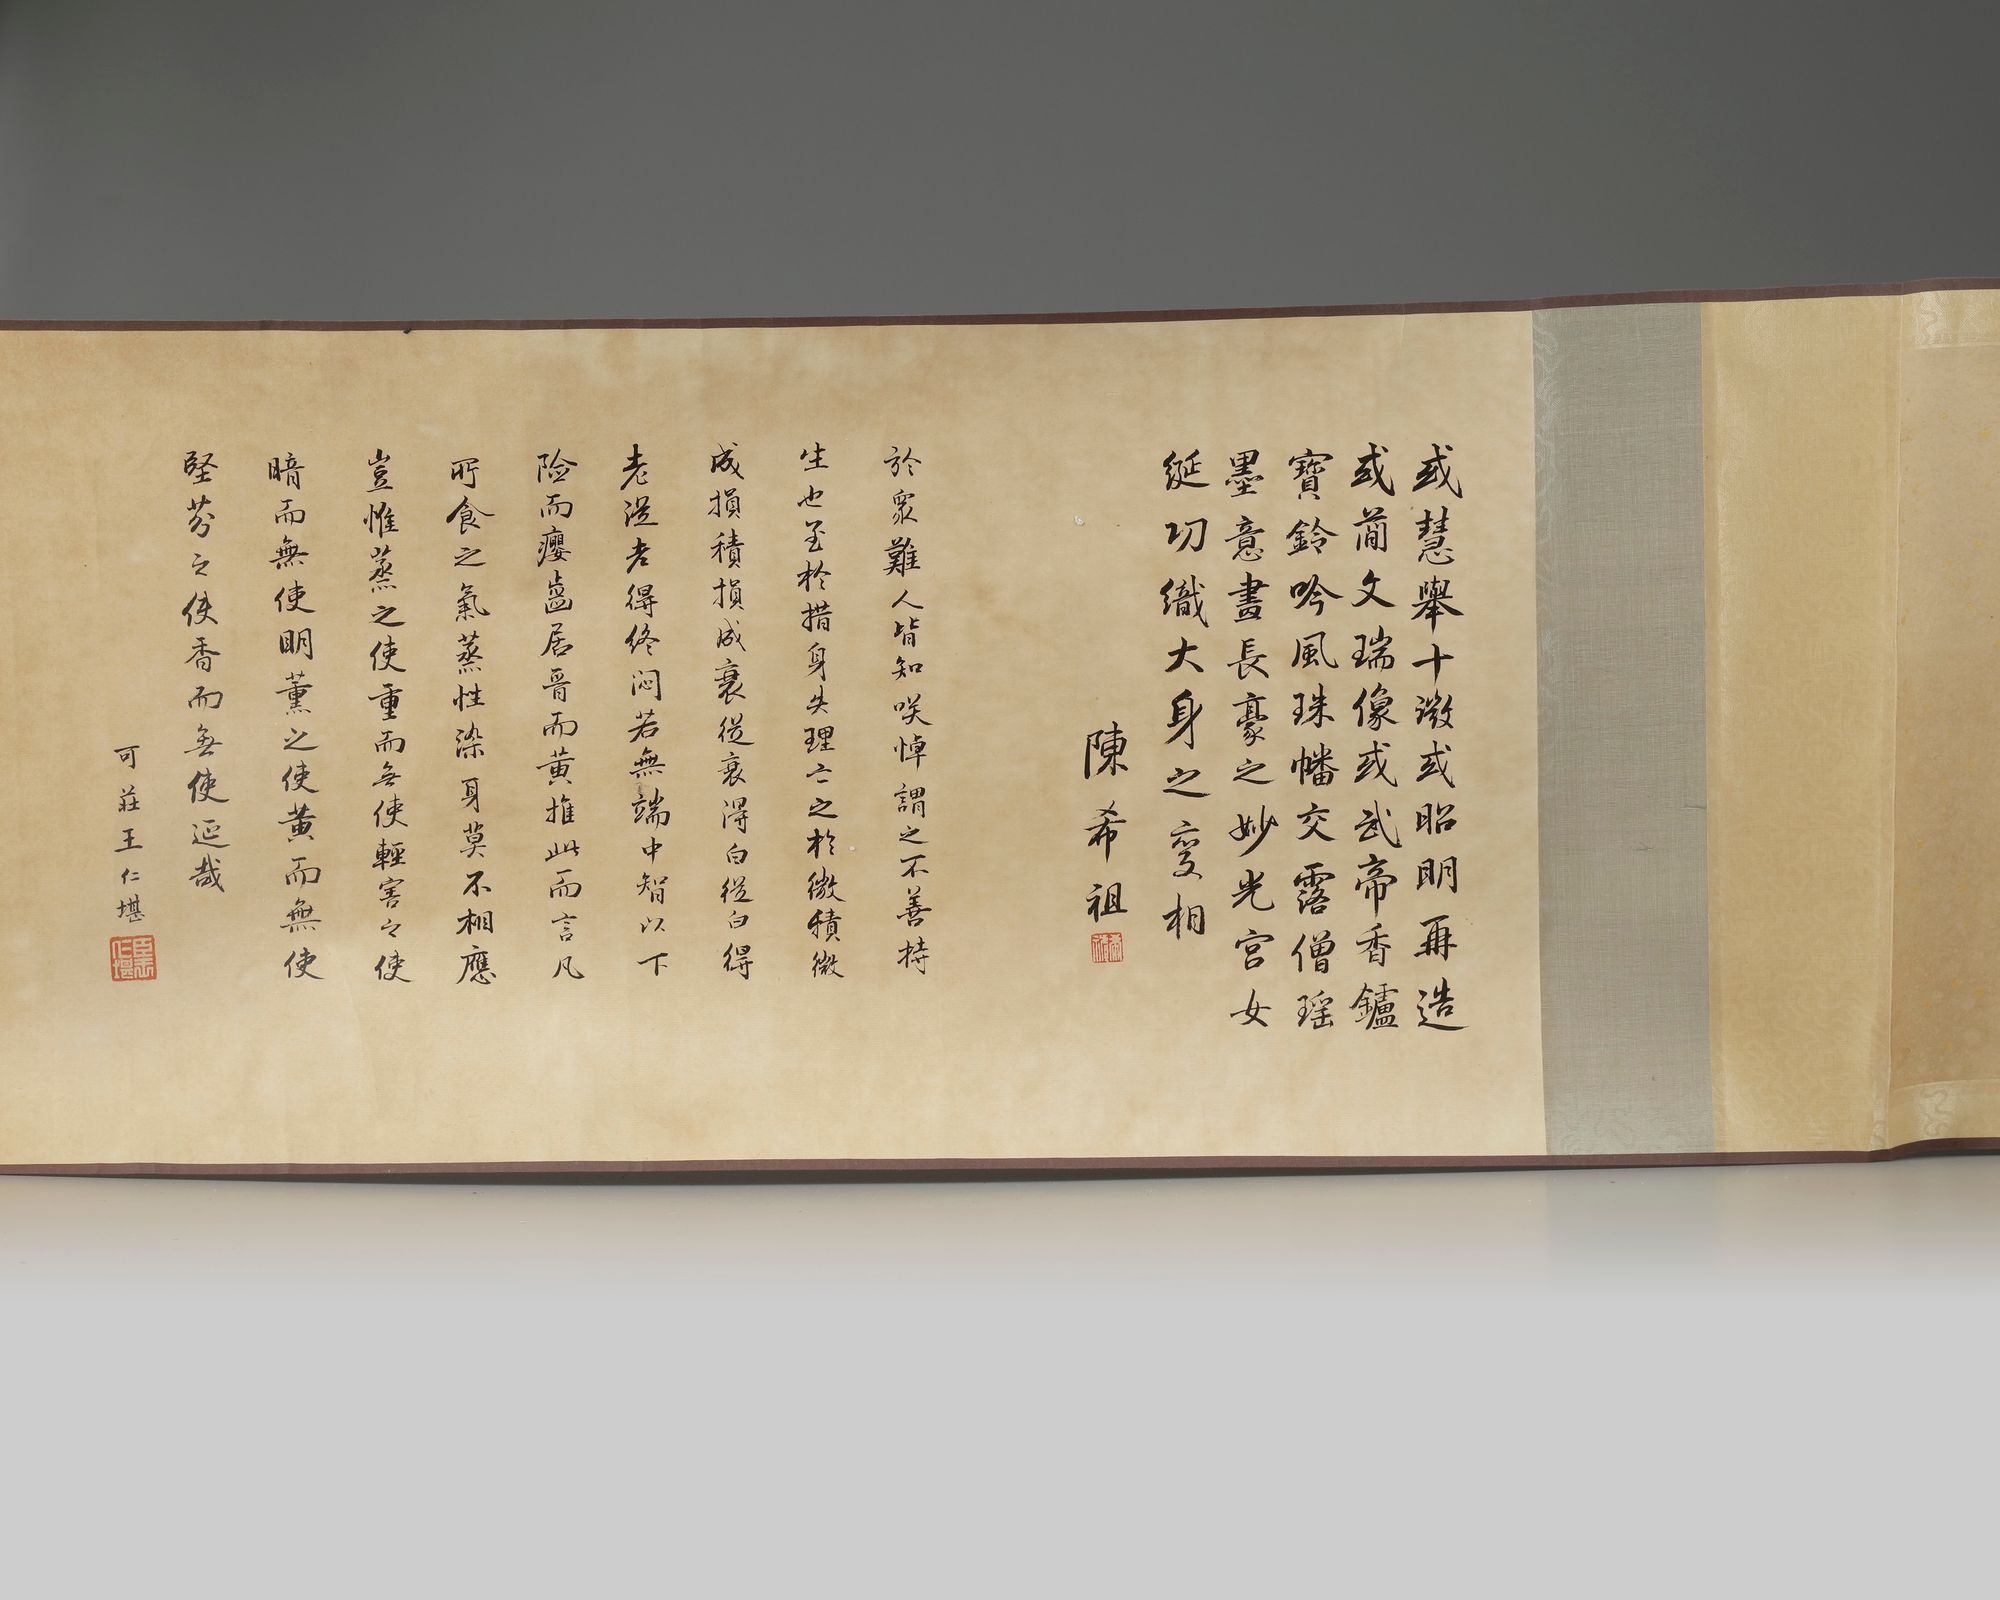 或慧舉十徵或昭明再造
或蕳文瑞像或武帝香鑪
寶鈴吟風珠幡交露僧瑶
墨意畫長豪之妙光宮女
綖切織大身之變相
陳希祖
於眾難人皆知咲悼謂之不善持
生也至於措身失理亡之於微積微
成損積損成衰從衰得白從白得
老從老得終悶若無端中智以下
險而癭齒居晉而黃推此而言凡
所食之氣蒸性染身莫不相應
豈惟蒸之使重而無使輕害之使
暗而無使明薰之使黃而無使
堅芬之使香而無使延哉
可莊王仁堪